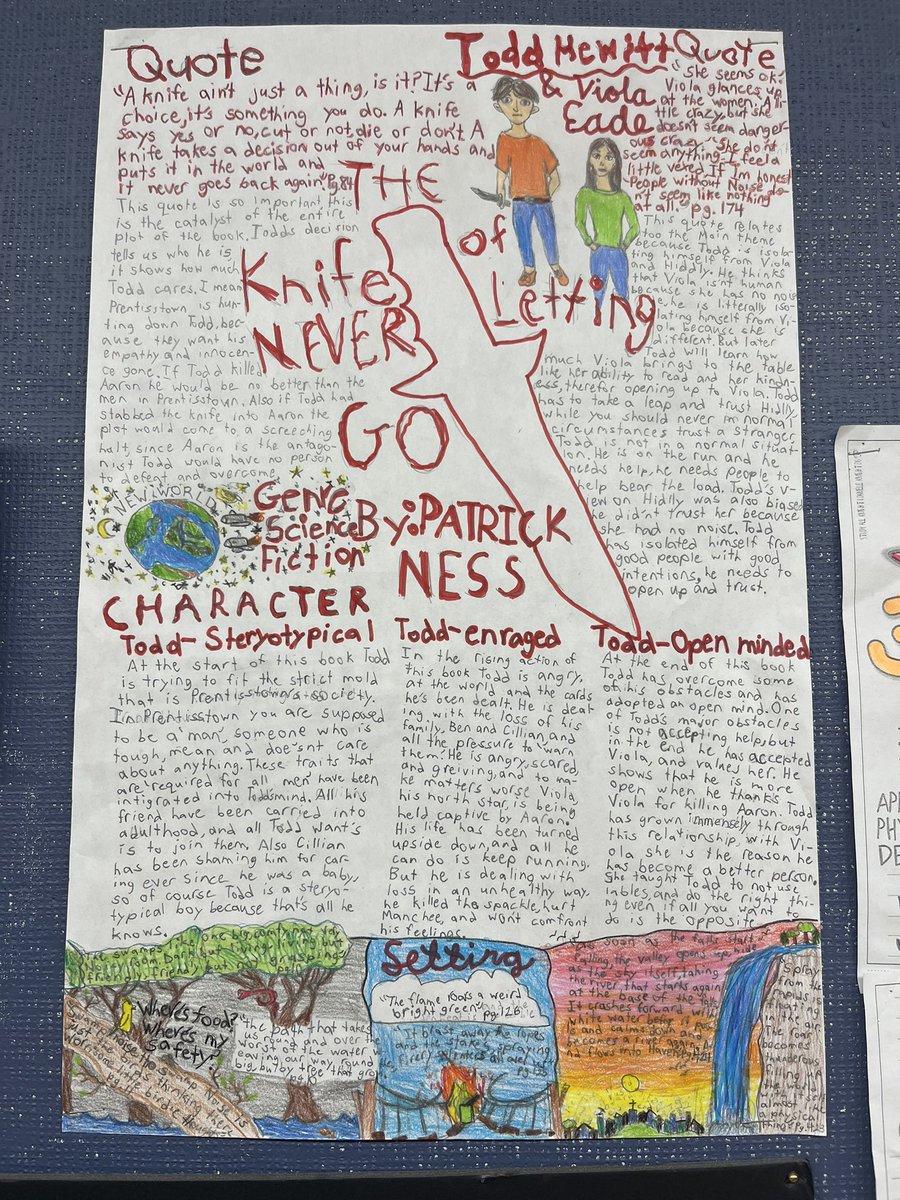 Quote
"A knife ain't just a thing, is it? It's a
choice, it's something you do. A knife
says yes or no, cut or not, die or don't. A
knife takes a decision out of your hands and
puts it in the world and
it never goes back again." Pg. 84
This quote is so important, this
is the catalyst of the entire
plot of the book. Todds decision
tells us who he is
it shows how much
Todd cares. I mean
Prentisstown is hun-
ting down Todd, bec-
ause they want his
empathy and innocen-
ce gone. If Todd killed
Aaron he would be no better than the
men in Prentisstown. Also if Todd had
stabbed the knife into Aaron the
plot would come to a screeching
halt, since Aaron is the antago-
nist Todd would have no person
to defeat and overcome.
Todd Hewitt
& Viola
Eade
Quote
"She seems ok"
Viola glances up
at the women. A li-
ttle crazy, but she
doesn't seem danger-
ous crazy." "She don't
seem anything." I feel a
little vexed. If I'm honest
People without Noise do-
n't seem like nothing
at all." pg. 174
This quote relates
too the Main theme
because Todd is isola-
ting himself from Viola
and Hiddly. He thinks
that Viola isn't human
because she has no nois
e, he is litterally iso-
lating himself from Vi-
ola because she is
different. But later
Todd will learn how
much Viola brings to the table
like her ability to read and her kindn-
ess, therefor opening up to Viola. Todd
has to take a leap and trust Hidly,
while you should never in normal
circumstances trust a stranger,
Todd is not in a normal situat-
ion. He is on the run and he
needs help, he needs people to
help bear the load. Todd's v-
iew on Hidly was also biased
he didn't trust her because
she had no noise. Todd
has isolated himself from
good people with good
intentions, he needs to
open up and trust.
THE
Knife of
NEVER Letting
GO
By: PATRICK
NESS
NEW WORLD
Genre
Science
Fiction
CHARACTER
Todd-Steryotypical
At the start of this book Todd
is trying to fit the strict mold
that is Prentisstown's society.
In Prentisstown you are supposed
to be a 'man', someone who is
tough, mean and doe'snt care
about anything. These traits that
are required for all men have been
intigrated into Todds mind. All his
friend have been carried into
adulthood, and all Todd want's
is to join them. Also Cillian
has been shaming him for car-
ing ever since he was a baby,
so of course Todd is a stery-
typical boy because that's all he
knows.
Todd-enraged
In the rising action of
this book Todd is angry,
at the world and the cards
he's been dealt. He is deal
ing with the loss of his
family, Ben and Cillian, and
all the pressure to 'warn
them'. He is angry, scared
and greiving, and to ma-
ke matters worse Viola,
his north star, is being
held captive by Aaron.
His life has been turned
upside down, and all he
can do is keep running.
But he is dealing with
loss in an unhealthy way,
he killed the spackle, hurt
Manchee, and won't comfront
his feelings.
Todd-Open minded
At the end of this book
Todd has overcome some
of his obstacles and has
adopted an open mind. One
of Todd's major obstacles
is not accepting help, but
in the end he has accepted
Viola, and values her. He
shows that he is more
open when he thanks
Viola for killing Aaron. Todd
has grown immensely through
this relationship, with Vi-
ola she is the reason he
has become a better person.
She taught Todd to not use
lables, and do the right thi-
ng even if all you want to
do is the opposite
Setting
where's food?
Where's my
safety?
"the path that takes
us round and over the
worst of the water
big, but by tree that
"The flame roars a weird
bright green" pg. 126
"It blast away the
and the stake, spraying
firery splenters all
soon as the falls start
falling, the valley opens up,
as the sky itself, taking
the river, that starts again
at the base of the falls
It crashes forward with
white water before it
and calms down and
becomes a river again. A
nd flows into Haven"
Spray
from the
rapids is
in
the air.
The roar
becomes
thunderous
filling up
the world
almost
a
physical
thing"